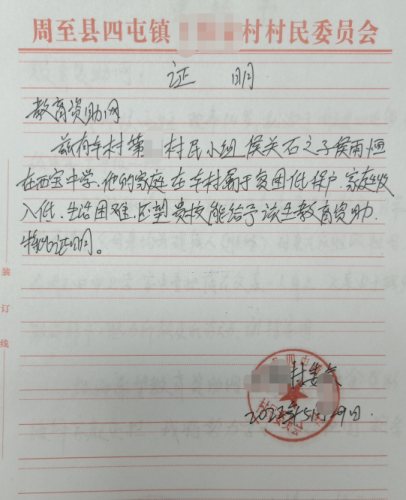 周至县四屯镇 村村民委员会
证 明
教育资助网
兹有本村第 村民小组 侯关石之子侯雨恒
在西宝中学.他的家庭在本村属于贫困低保户.家庭收
入低.生活困难.望贵校能给予该生教育资助.
特此证明。
村委会
年 月 19日.
装订线